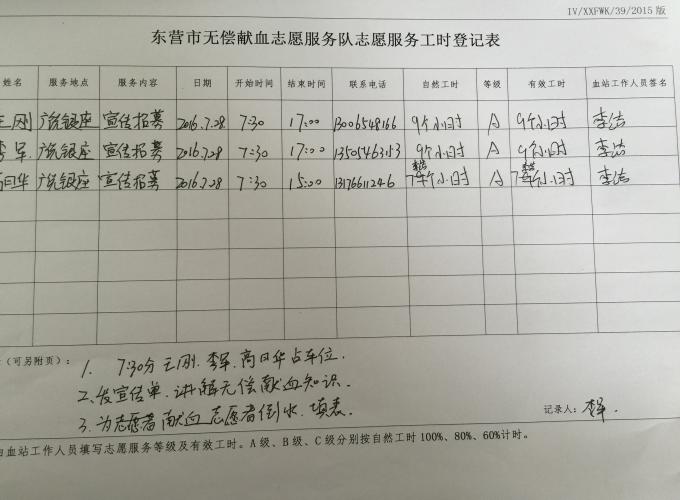 IV/XXFWK/39/2015 版
东营市无偿献血志愿服务队志愿服务工时登记表
姓名 服务地点 服务内容 日期 开始时间 结束时间 联系电话 自然工时 等级 有效工时 血站工作人员签名
王刚 广饶银座 宣传招募 2016.7.28 7:30 17:00 13006548166 9个小时 A 9个小时 李洁
李军 广饶银座 宣传招募 2016.7.28 7:30 17:00 13505463153 9个小时 A 9个小时 李洁
高日华 广饶银座 宣传招募 2016.7.28 7:30 15:00 13176611246 7个小时 A 7个小时 李洁
(可另附页): 1. 7:30分 王刚.李军.高日华占车位.
2.发宣传单.讲解无偿献血知识.
3.为志愿者献血志愿者倒水.填表.
记录人: 李军.
由血站工作人员填写志愿服务等级及有效工时。A级、B级、C级分别按自然工时100%、80%、60%计时。